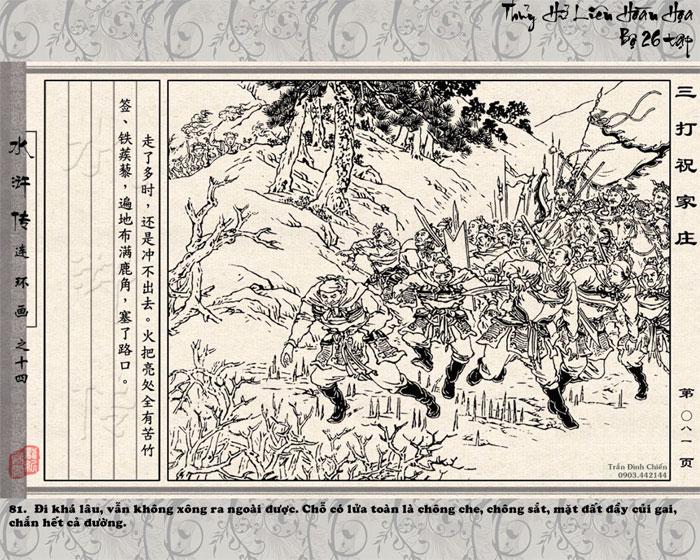 Thủy Hử Liên Hoàn Họa
Bộ 26 tập
三打祝家庄
第〇八一页
走了多时，还是冲不出去。火把亮处全有苦竹
签、铁蒺藜，遍地布满鹿角，塞了路口。
水浒传连环画之十四
水浒传
Trần Đình Chiến
0903.442144
81. Đi khá lâu, vẫn không xông ra ngoài được. Chỗ có lửa toàn là chông che, chông sắt, mặt đất đầy củi gai,
chắn hết cả đường.